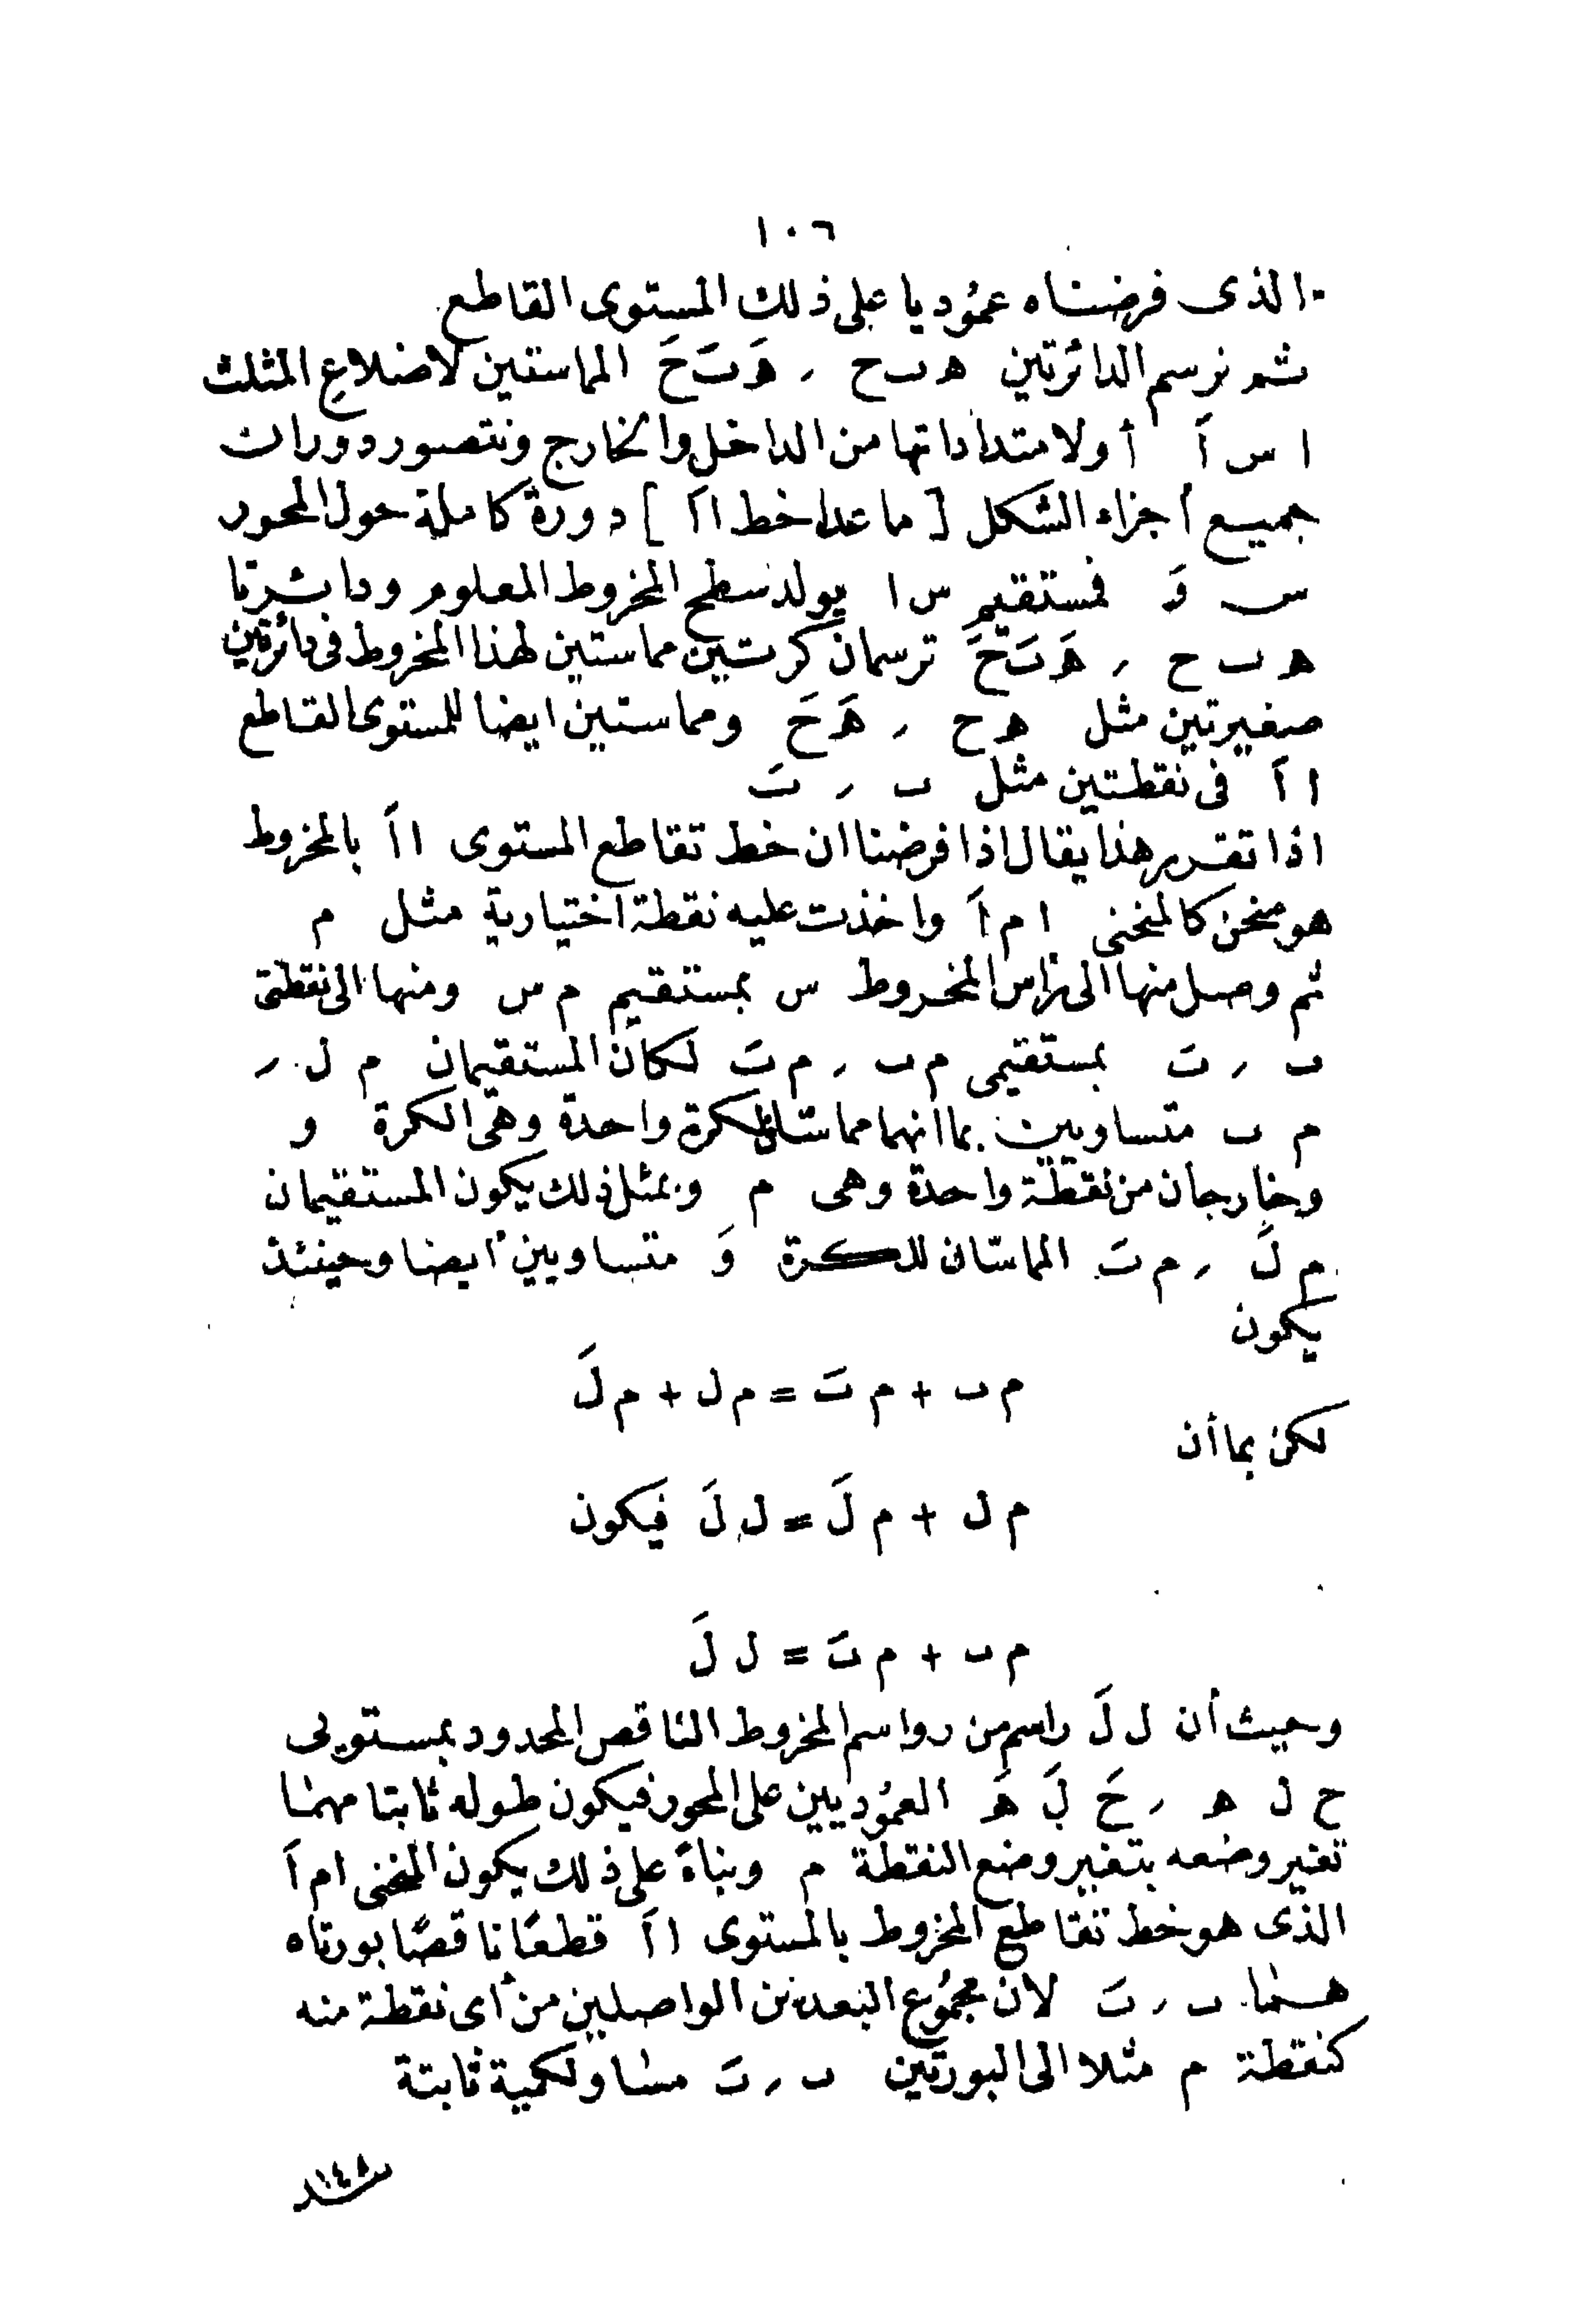 ١٠٦
الذى فرضناه عمُوديا على ذلك المستوى القاطع
ثم نرسم الدائرتين ھ ٮ ح ، ھَ ٮَ حَ المماستين لاضلاع المثلث
ا س اَ أولامتداداتها من الداخل والخارج ونتصور دورات
جميع أجزاء الشكل [ ما عدا خط ا اَ ] دورة كاملة حول المحور
س وَ فمستقيم س ا يولد سطح المخروط المعلوم ودائرتا
ھ ٮ ح ، ھَ ٮَ حَ ترسمان كرتين مماستين لهذا المخروط فى دائرتين
صغيرتين مثل ھ ح ، ھَ حَ ومماستين ايضا للمستوى القاطع
ا اَ فى نقطتين مثل ٮ ، ٮَ
اذا تقرر هذا يقال اذا فرضنا ان خط تقاطع المستوى ا اَ بالمخروط
هو منحن كالمنحنى ا م اَ واخذت عليه نقطة اختيارية مثل م
ثم وصل منها الى راس المخروط س بمستقيم م س ومنها الى نقطتى
ٮ ، ٮَ بمستقيمى م ٮ ، م ٮَ لكان المستقيمان م ل ،
م ٮ متساويين بما انهما مماسّان لكرة واحدة وهى الكرة و
وخارجان من نقطة واحدة وهى م وبمثل ذلك يكون المستقيمان
م لَ ، م ٮَ المماسّان للكرة وَ متساويين أيضا وحينئذ
يكون
م ٮ + م ٮَ = م ل + م لَ
لكن بما أن
م ل + م لَ = ل لَ فيكون
م ٮ + م ٮَ = ل لَ
وحيث أن ل لَ راسم من رواسم المخروط الناقص المحدود بمستويى
ح ل ھ ، حَ لَ ھَ العمُوديين على المحور فيكون طوله ثابتا مهما
تغير وضعه بتغير وضع النقطة م وبناءً على ذلك يكون المنحنى ا م اَ
الذى هو خط تقاطع المخروط بالمستوى ا اَ قطعًا ناقصًا بورتاه
هما ٮ ، ٮَ لان مجمُوع البعدين الواصلين من أى نقطة منه
كنقطة م مثلا الى البورتين ٮ ، ٮَ مساو لكمية ثابتة